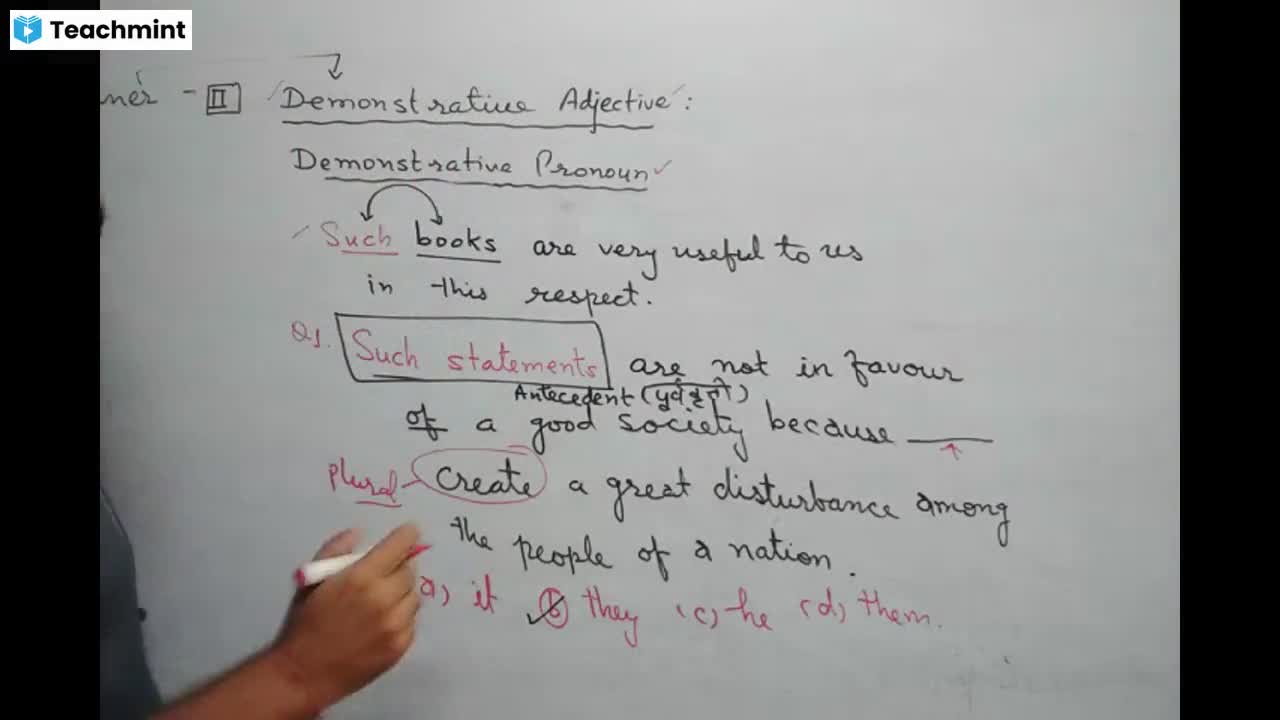 Teachmint
II Demonstrative Adjective :
Demonstrative Pronoun
Such books are very useful to us
in this respect.
Q1. Such statements are not in favour
Antecedent (पूर्ववृत्ती)
of a good society because ____
Plural - create a great disturbance among
the people of a nation.
a) it (b) they (c) he (d) them.